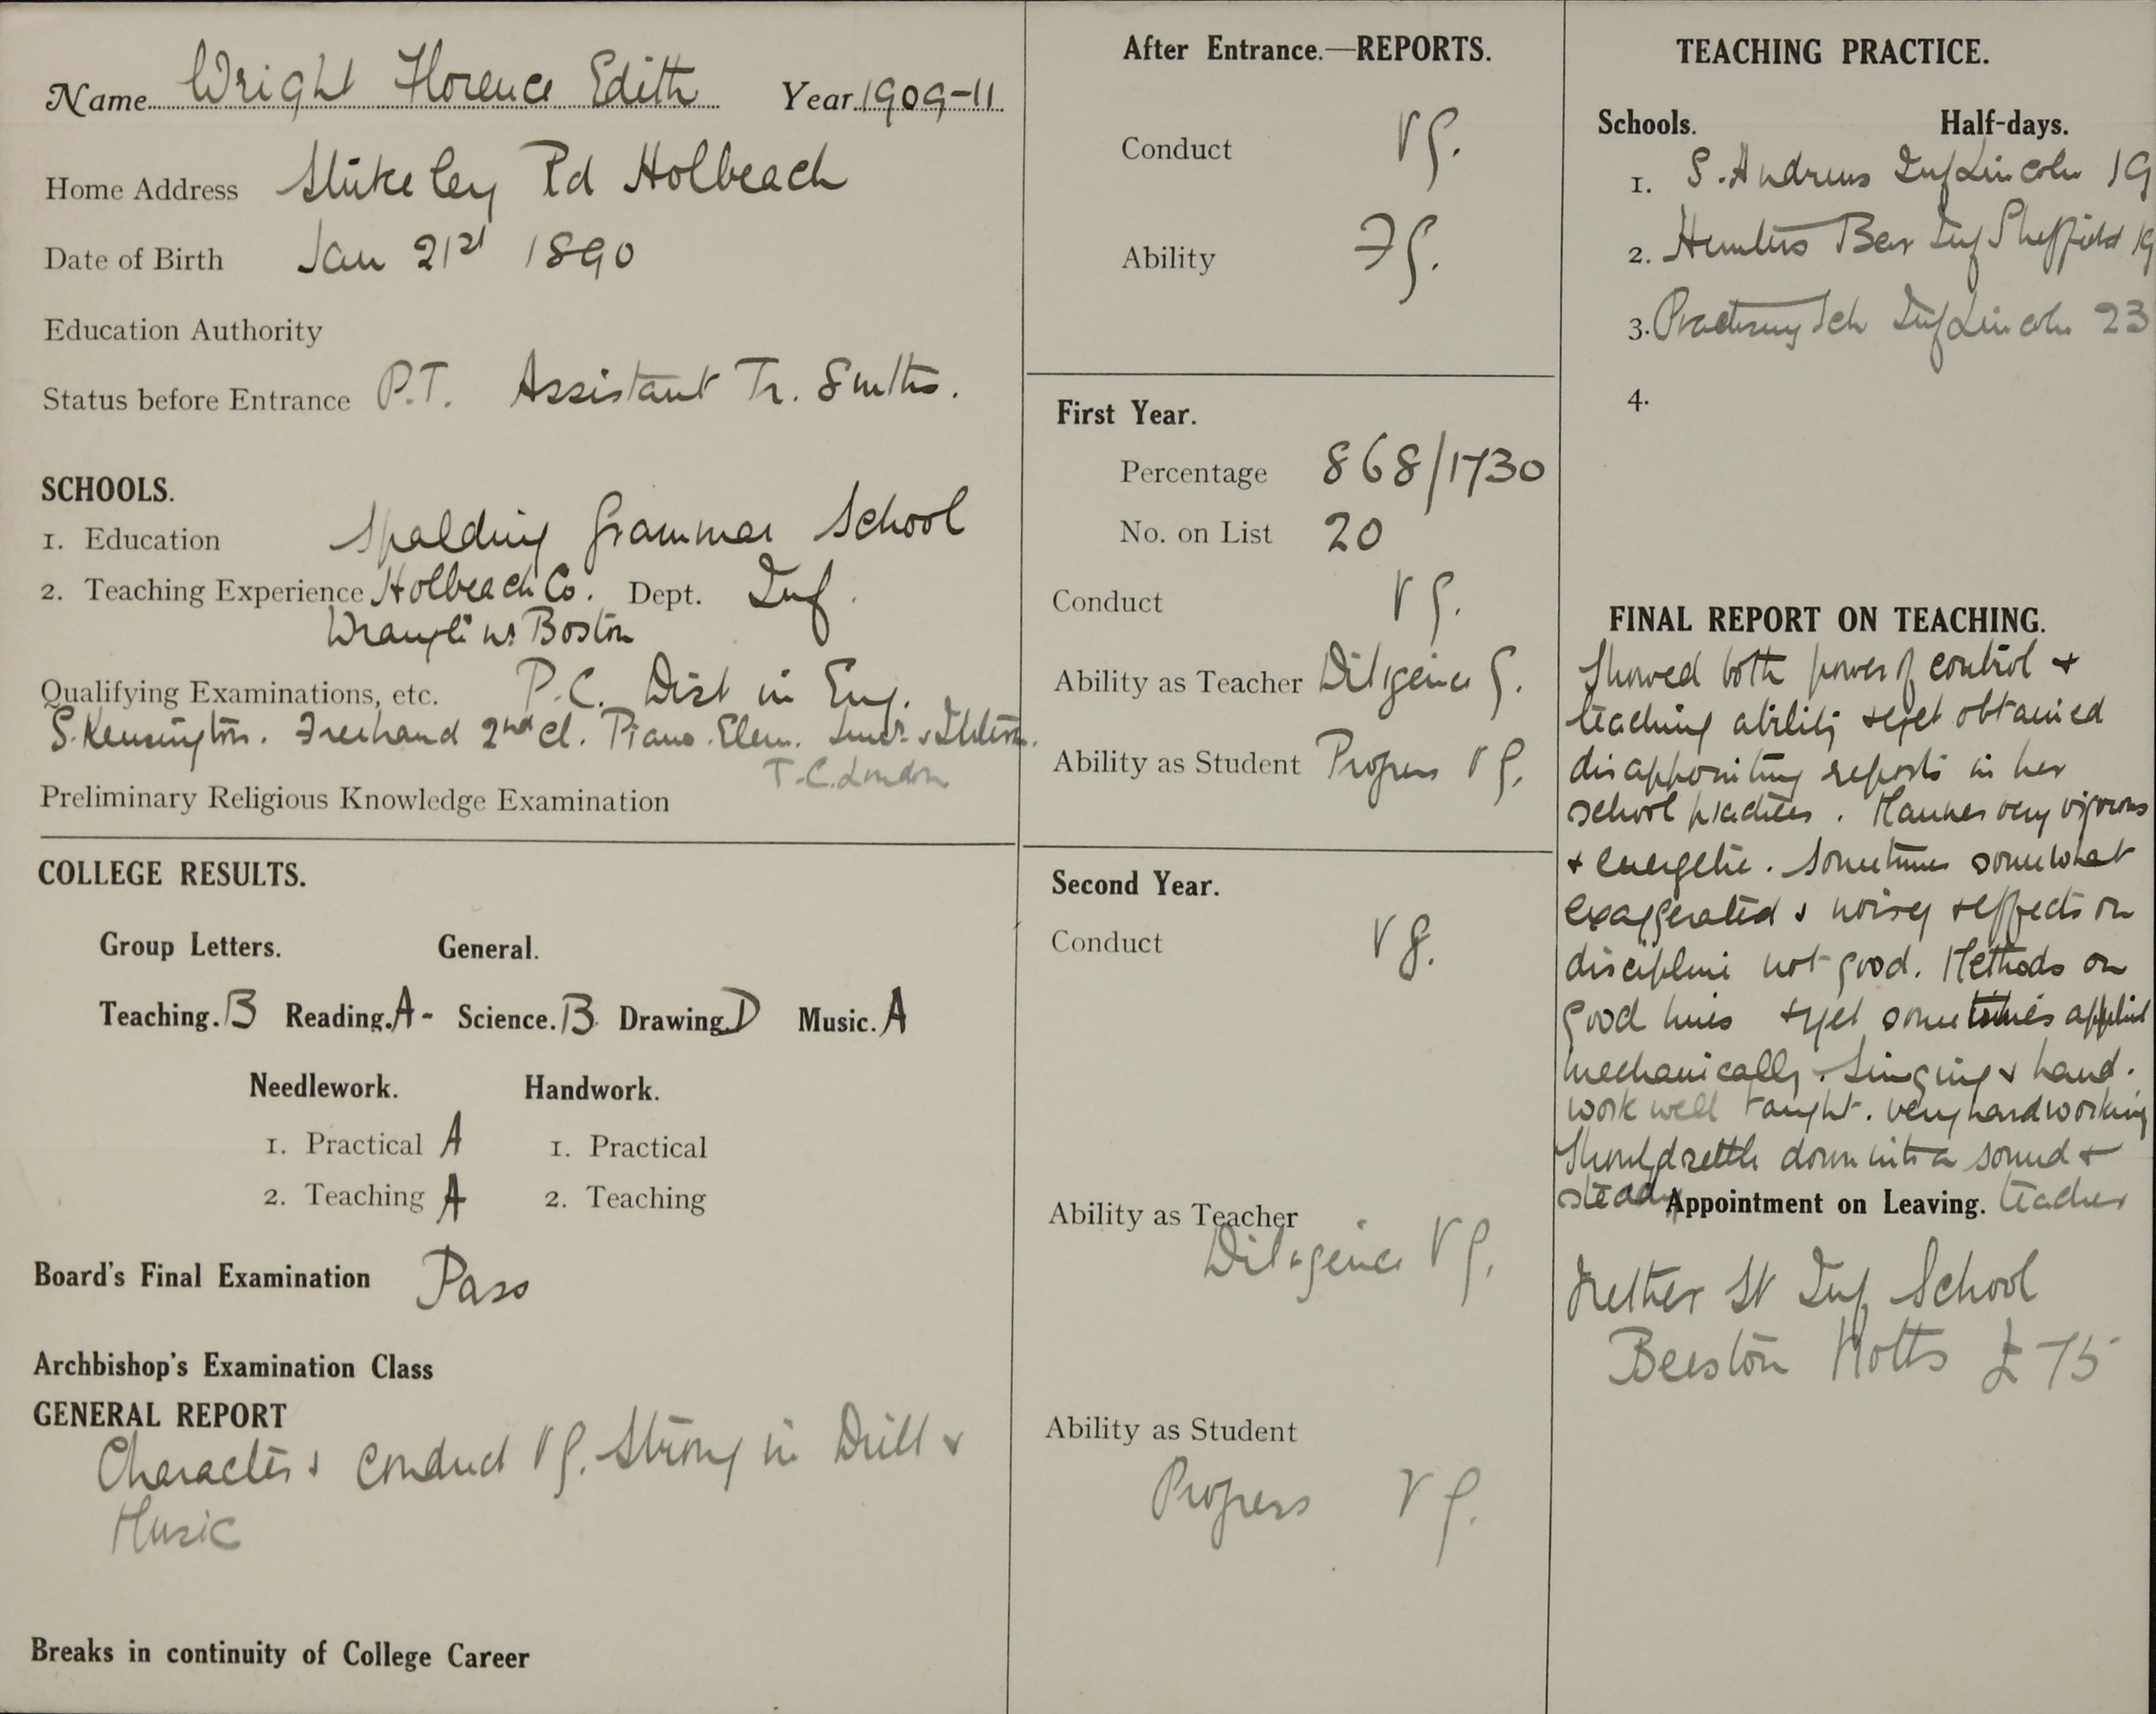 Name Wright Florence Edith Year 1909-11
Home Address Stukeley Rd Holbeach
Date of Birth Jan 21st 1890
Education Authority
Status before Entrance P.T. Assistant Tr. 8 mths.
SCHOOLS.
1. Education Spalding Grammar School
2. Teaching Experience Holbeach Co. Dept. Inf.
Boston
Qualifying Examinations, etc. P.C. Dist in Eng.
S. Kensington. Freehand 2nd Cl. Piano. Elem.
T.C. London
Preliminary Religious Knowledge Examination
COLLEGE RESULTS.
Group Letters. General.
Teaching. B Reading. A- Science. B Drawing. D Music. A
Needlework. Handwork.
1. Practical A 1. Practical
2. Teaching A 2. Teaching
Board's Final Examination Pass
Archbishop's Examination Class
GENERAL REPORT
Character & conduct V g. Strong in Drill &
Music
Breaks in continuity of College Career
After Entrance.—REPORTS.
Conduct V g.
Ability F g.
First Year.
Percentage 868/1730
No. on List 20
Conduct V g.
Ability as Teacher Diligence g.
Ability as Student Progress V g.
Second Year.
Conduct V g.
Ability as Teacher
Diligence V g.
Ability as Student
Progress V g.
TEACHING PRACTICE.
Schools. Half-days.
1. S. Andrews Inf Lincoln 19
2. Hunters Bar Inf Sheffield 19
3. Practising Sch Inf Lincoln 23
4.
FINAL REPORT ON TEACHING.
Showed both power of control &
teaching ability & yet obtained
disappointing reports in her
school practices. Manner very vigorous
& energetic. Sometimes somewhat
exaggerated & noisy & effects on
discipline not good. Methods on
good lines & yet sometimes applied
mechanically. Singing & hand.
work well taught. very hardworking
Should settle down into a sound &
steady teacher
Appointment on Leaving.
Nether St Inf School
Beeston Notts £75